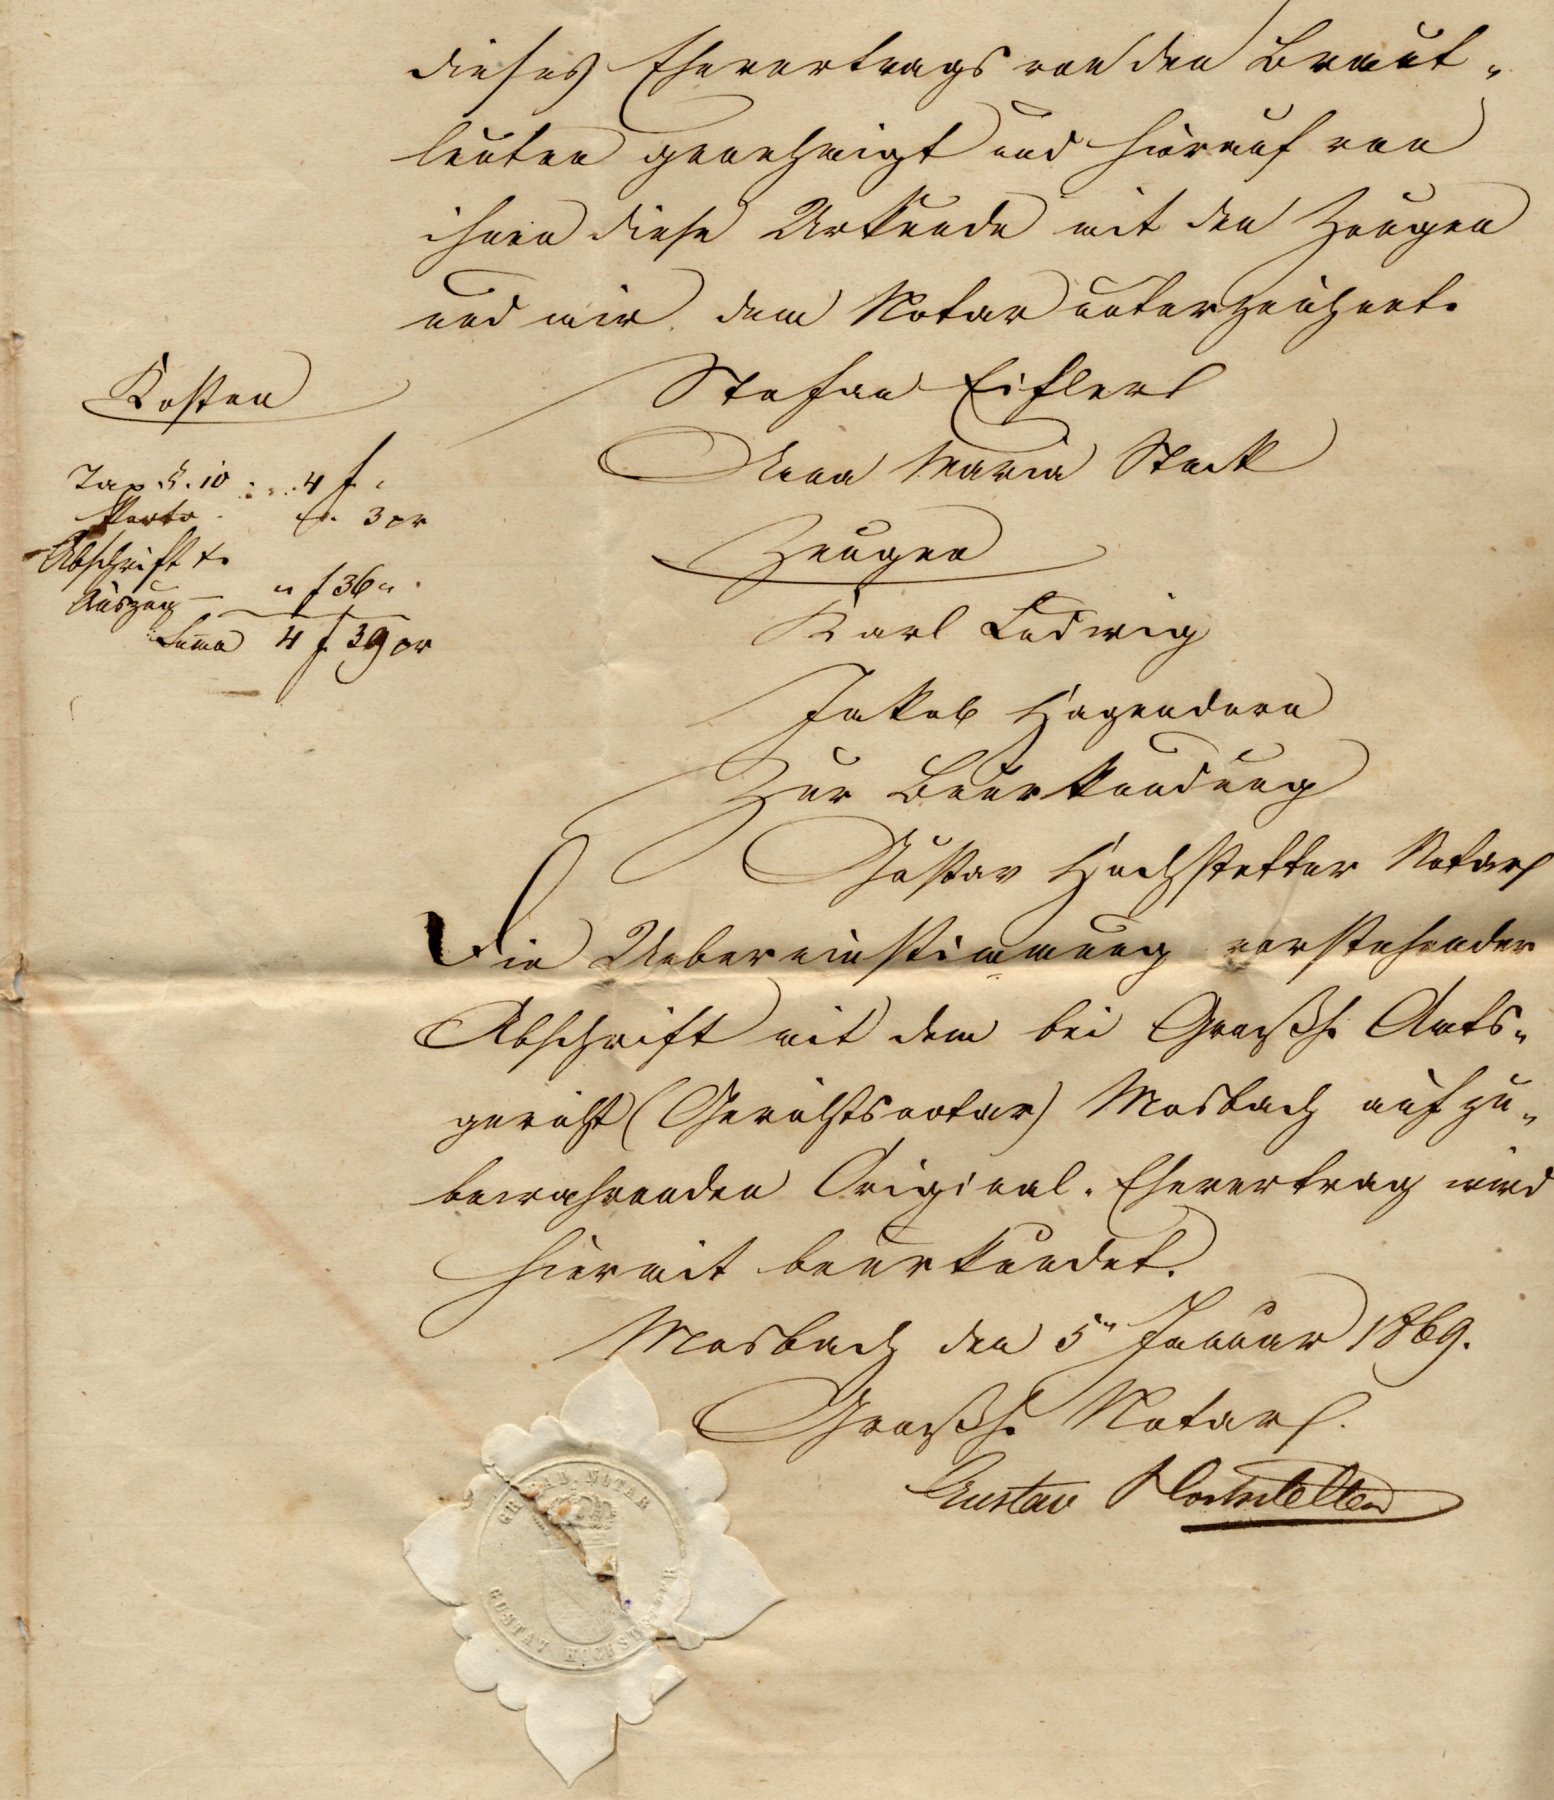 dieses Ehevertrags von den Braut-
leuten genehmigt und hierauf von
ihnen diese Urkunde mit den Zeugen
und mir dem Notar unterzeichnet.
Stefan Eifler
Anna Maria Stark
Zeugen
Karl Ludwig
Jakob Hagendorn
Zur Beurkundung
Gustav Hochstetter Notar
Kosten
Tax §. 10 4 f.
Porto 3 xr
Abschrift u.
Auszug — " f 36 "
Suma 4 f 39 xr
Die Uebereinstimmung vorstehender
Abschrift mit dem bei Großh. Amts-
gericht (Gerichtsnotar) Mosbach aufzu-
bewahrenden Original-Ehevertrag wird
hiermit beurkundet.
Mosbach den 5n Januar 1869.
Großh. Notar
Gustav Hochstetter
GR. BAD. NOTAR
GUSTAV HOCHSTETTER